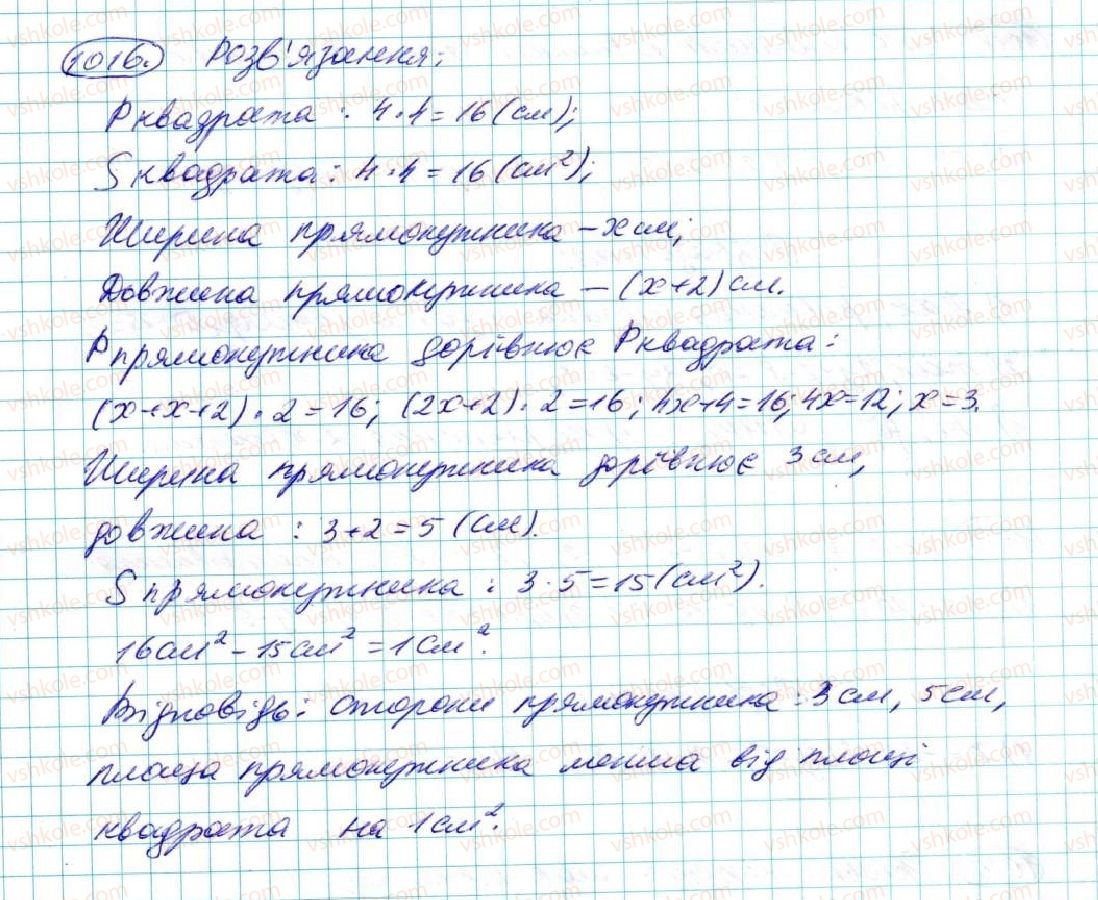 1016. Розв'язання:
P квадрата: 4·4=16(см);
S квадрата: 4·4=16(см²);
Ширина прямокутника – x см;
Довжина прямокутника – (x+2) см.
P прямокутника дорівнює P квадрата:
(x+x+2)·2=16; (2x+2)·2=16; 4x+4=16; 4x=12; x=3.
Ширина прямокутника дорівнює 3 см,
довжина: 3+2=5 (см).
S прямокутника: 3·5=15(см²).
16см²–15см²=1см².
Відповідь: сторони прямокутника: 3 см, 5см,
площа прямокутника менша від площі
квадрата на 1см².